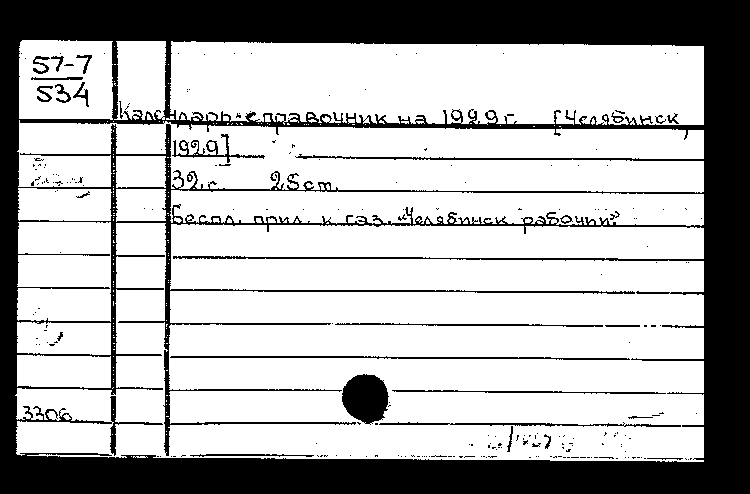 57-7
534
Календарь-справочник на 1929 г. [Челябинск,
1929]
32 с. 25 cm.
Беспл. прил. к газ. "Челябинск. рабочий"
3306